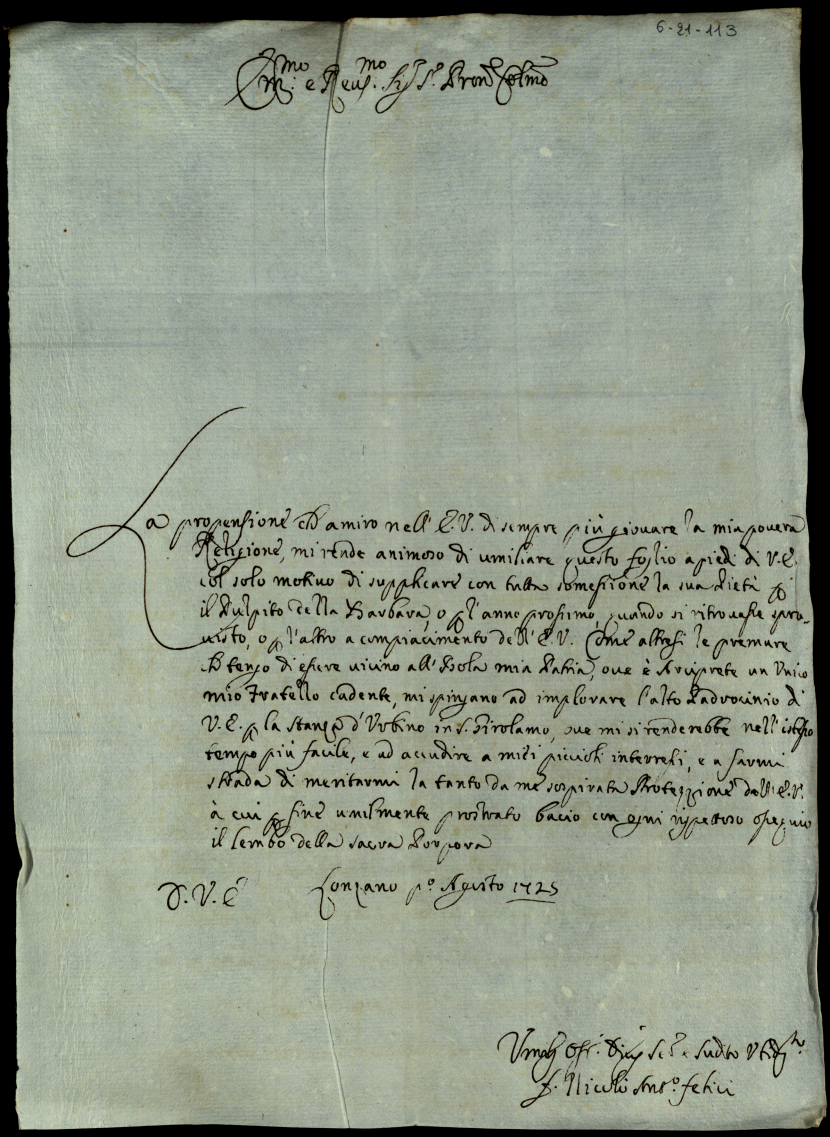 6-21-113
Em:mo e Reu:mo Sig:r S:r Pron Colmo
La propensione ch'amiro nell'E.V. di sempre più giouare la mia pouera
Religione, mi rende animoso di umiliare questo foglio a piedi di V.E.
col solo motiuo di supplicare con tutta somessione la sua Pietà p
il Pulpito della Barbara, o p l'anno prossimo, quando si ritrouasse spro-
uisto, o p l'altro a compiacimento dell'E.V. Come altresì le premure
ch tengo di essere uicino all'Isola mia Patria, oue è Arciprete un Unico
mio Fratello cadente, mi spingano ad implorare l'alto Padrocinio di
V.E. p la stanza d'Urbino in S. Girolamo, oue mi si renderebbe nell'istesso
tempo più facile, e ad accudire a miei piccioli interessi, e a farmi
strada di meritarmi la tanto da me sospirata Protezzione dell'E.V.
à cui p fine umilmente prostrato bacio con ogni rispettoso ossequio
il lembo della sacra Porpora
D.V.E. Lonzano po Agosto 1725
Se:r e Sudito
f. Nicolò Anto. Felici